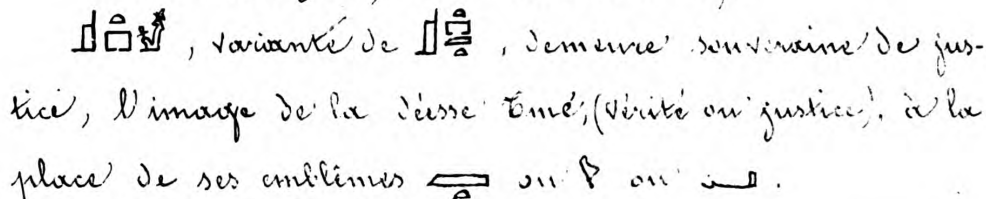 , variante de , demeure souveraine de jus-
tice, l'image de la déesse Tmé, (vérité ou justice), à la
place de ses emblêmes ou ou .